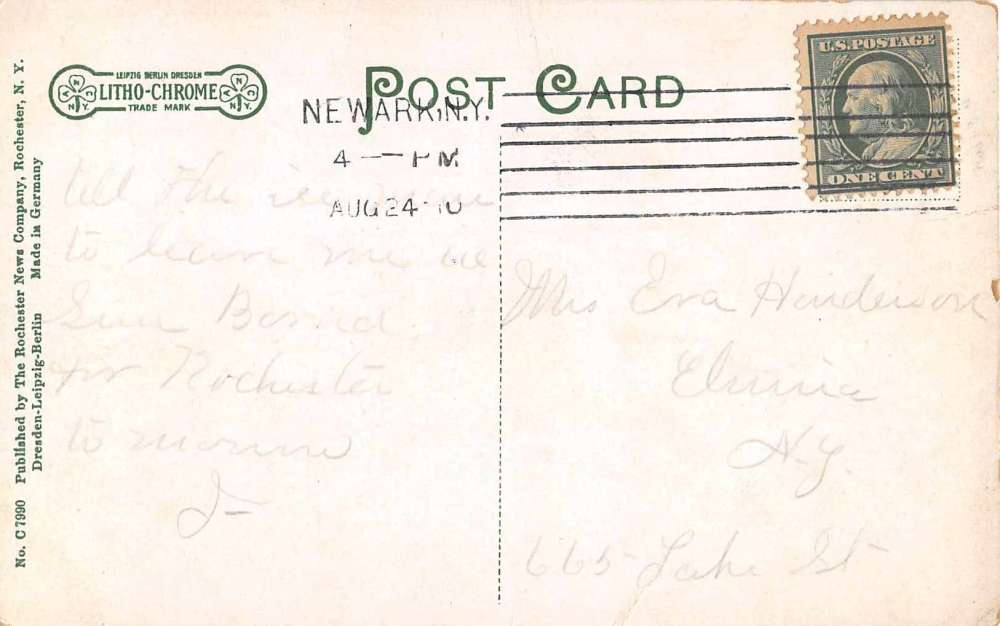 LEIPZIG BERLIN DRESDEN
LITHO-CHROME
TRADE MARK
POST CARD
U.S.POSTAGE
ONE CENT
NEWARK, N.Y.
4 — PM
AUG 24 10
No. C 7990 Published by The Rochester News Company, Rochester, N. Y.
Dresden-Leipzig-Berlin Made in Germany
tell the
to leave me
Bornd
for Rochester
to morrow
J-
Mrs Eva Henderson
Elmira
N.Y.
665 Lake St